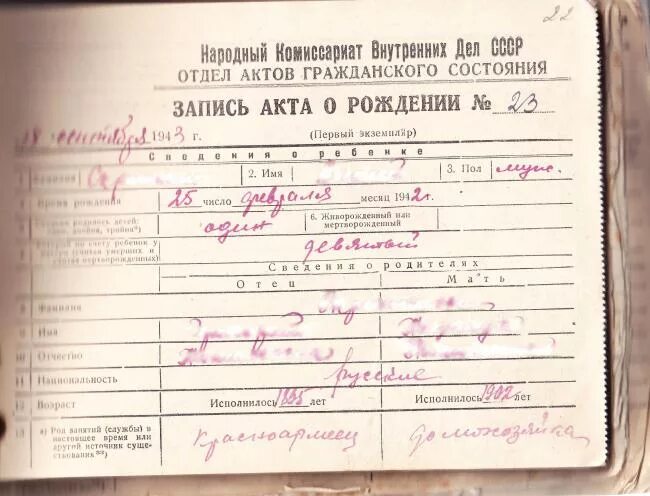 22
Народный Комиссариат Внутренних Дел СССР
ОТДЕЛ АКТОВ ГРАЖДАНСКОГО СОСТОЯНИЯ
ЗАПИСЬ АКТА О РОЖДЕНИИ № 23
18 сентября 1943 г. (Первый экземпляр)
Сведения о ребенке
1 2. Имя 3. Пол муж.
Время рождения 25 число февраля месяц 1942 г.
родилось детей: один 6. Живорожденный или
двойня, тройня*) мертворожденный
по счету ребенок у девятый
матери (считая умерших и
мертворожденных)
Сведения о родителях
Отец Мать
8 Фамилия
9 Имя
10 Отчество
11 Национальность русские
12 Возраст Исполнилось 1895 лет Исполнилось 1902 лет
13 а) Род занятий (службы) в Красноармеец домохозяйка
настоящее время или
другой источник суще-
ствования**)